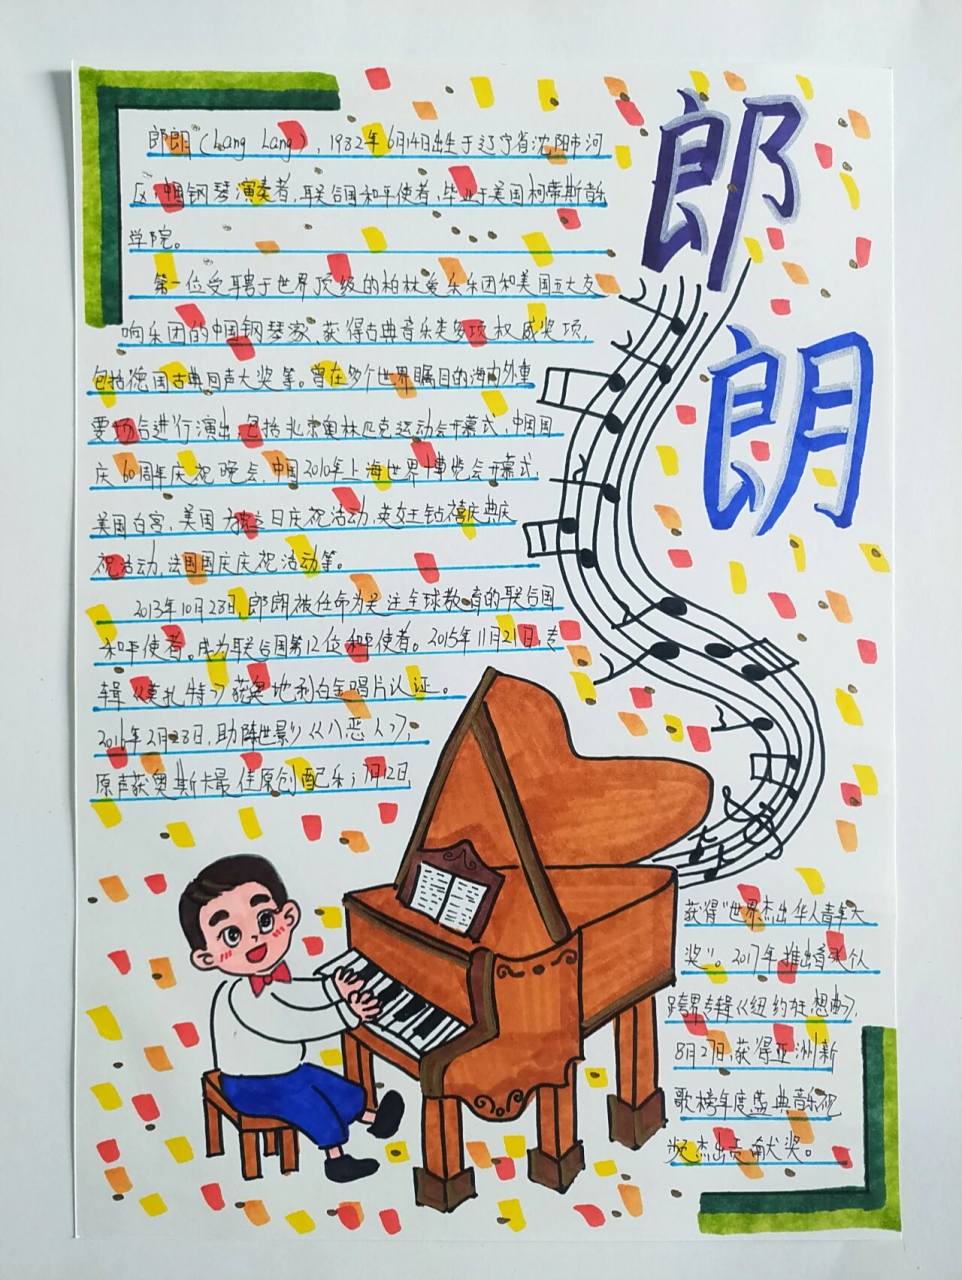 郎
朗
郎朗（Lang Lang），1982年6月14日出生于辽宁省沈阳市河
区，中国钢琴演奏者，联合国和平使者，毕业于美国柯蒂斯音乐
学院。
第一位受聘于世界顶级的柏林爱乐乐团和美国五大交
响乐团的中国钢琴家，获得古典音乐类多项权威奖项，
包括德国古典回声大奖等。曾在多个世界瞩目的海内外重
要场合进行演出，包括北京奥林匹克运动会开幕式，中国国
庆60周年庆祝晚会，中国2010年上海世界博览会开幕式，
美国白宫，美国独立日庆祝活动，英女王钻禧庆典庆
祝活动，法国国庆庆祝活动等。
2013年10月28日，郎朗被任命为关注全球教育的联合国
和平使者。成为联合国第12位和平使者。2015年11月21日，专
辑《莫扎特》获奥地利白金唱片认证。
2016年2月28日，助阵世影《八恶人》，
原声获奥斯卡最佳原创配乐；1月12日
获得“世界杰出华人青年大
奖”。2017年推出音乐从
跨界专辑《纽约狂想曲》，
8月27日，获得亚洲新
歌榜年度盛典音乐视
频杰出贡献奖。